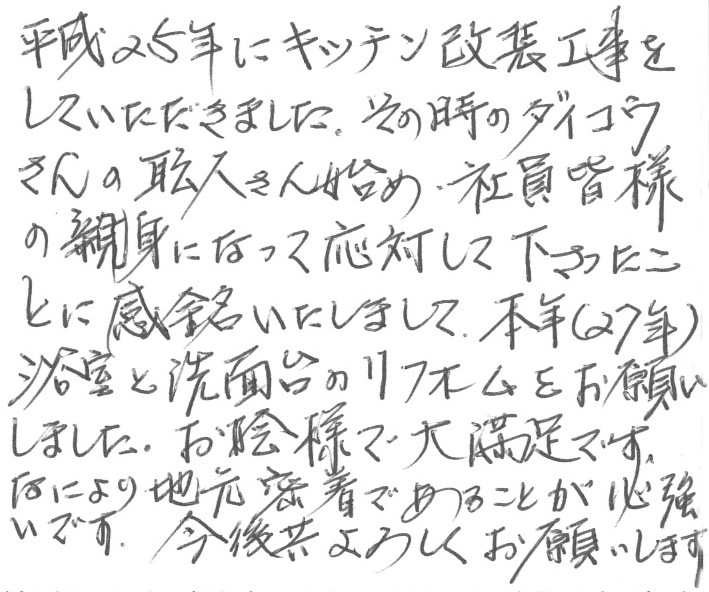 平成25年にキッチン改装工事を
していただきました。その時のダイコウ
さんの職人さん始め、社員皆様
の親身になって応対して下さったこ
とに感銘いたしまして、本年(27年)
浴室と洗面台のリフォームをお願い
しました。お陰様で大満足です。
なにより地元密着であることが心強
いです。今後共よろしくお願いします